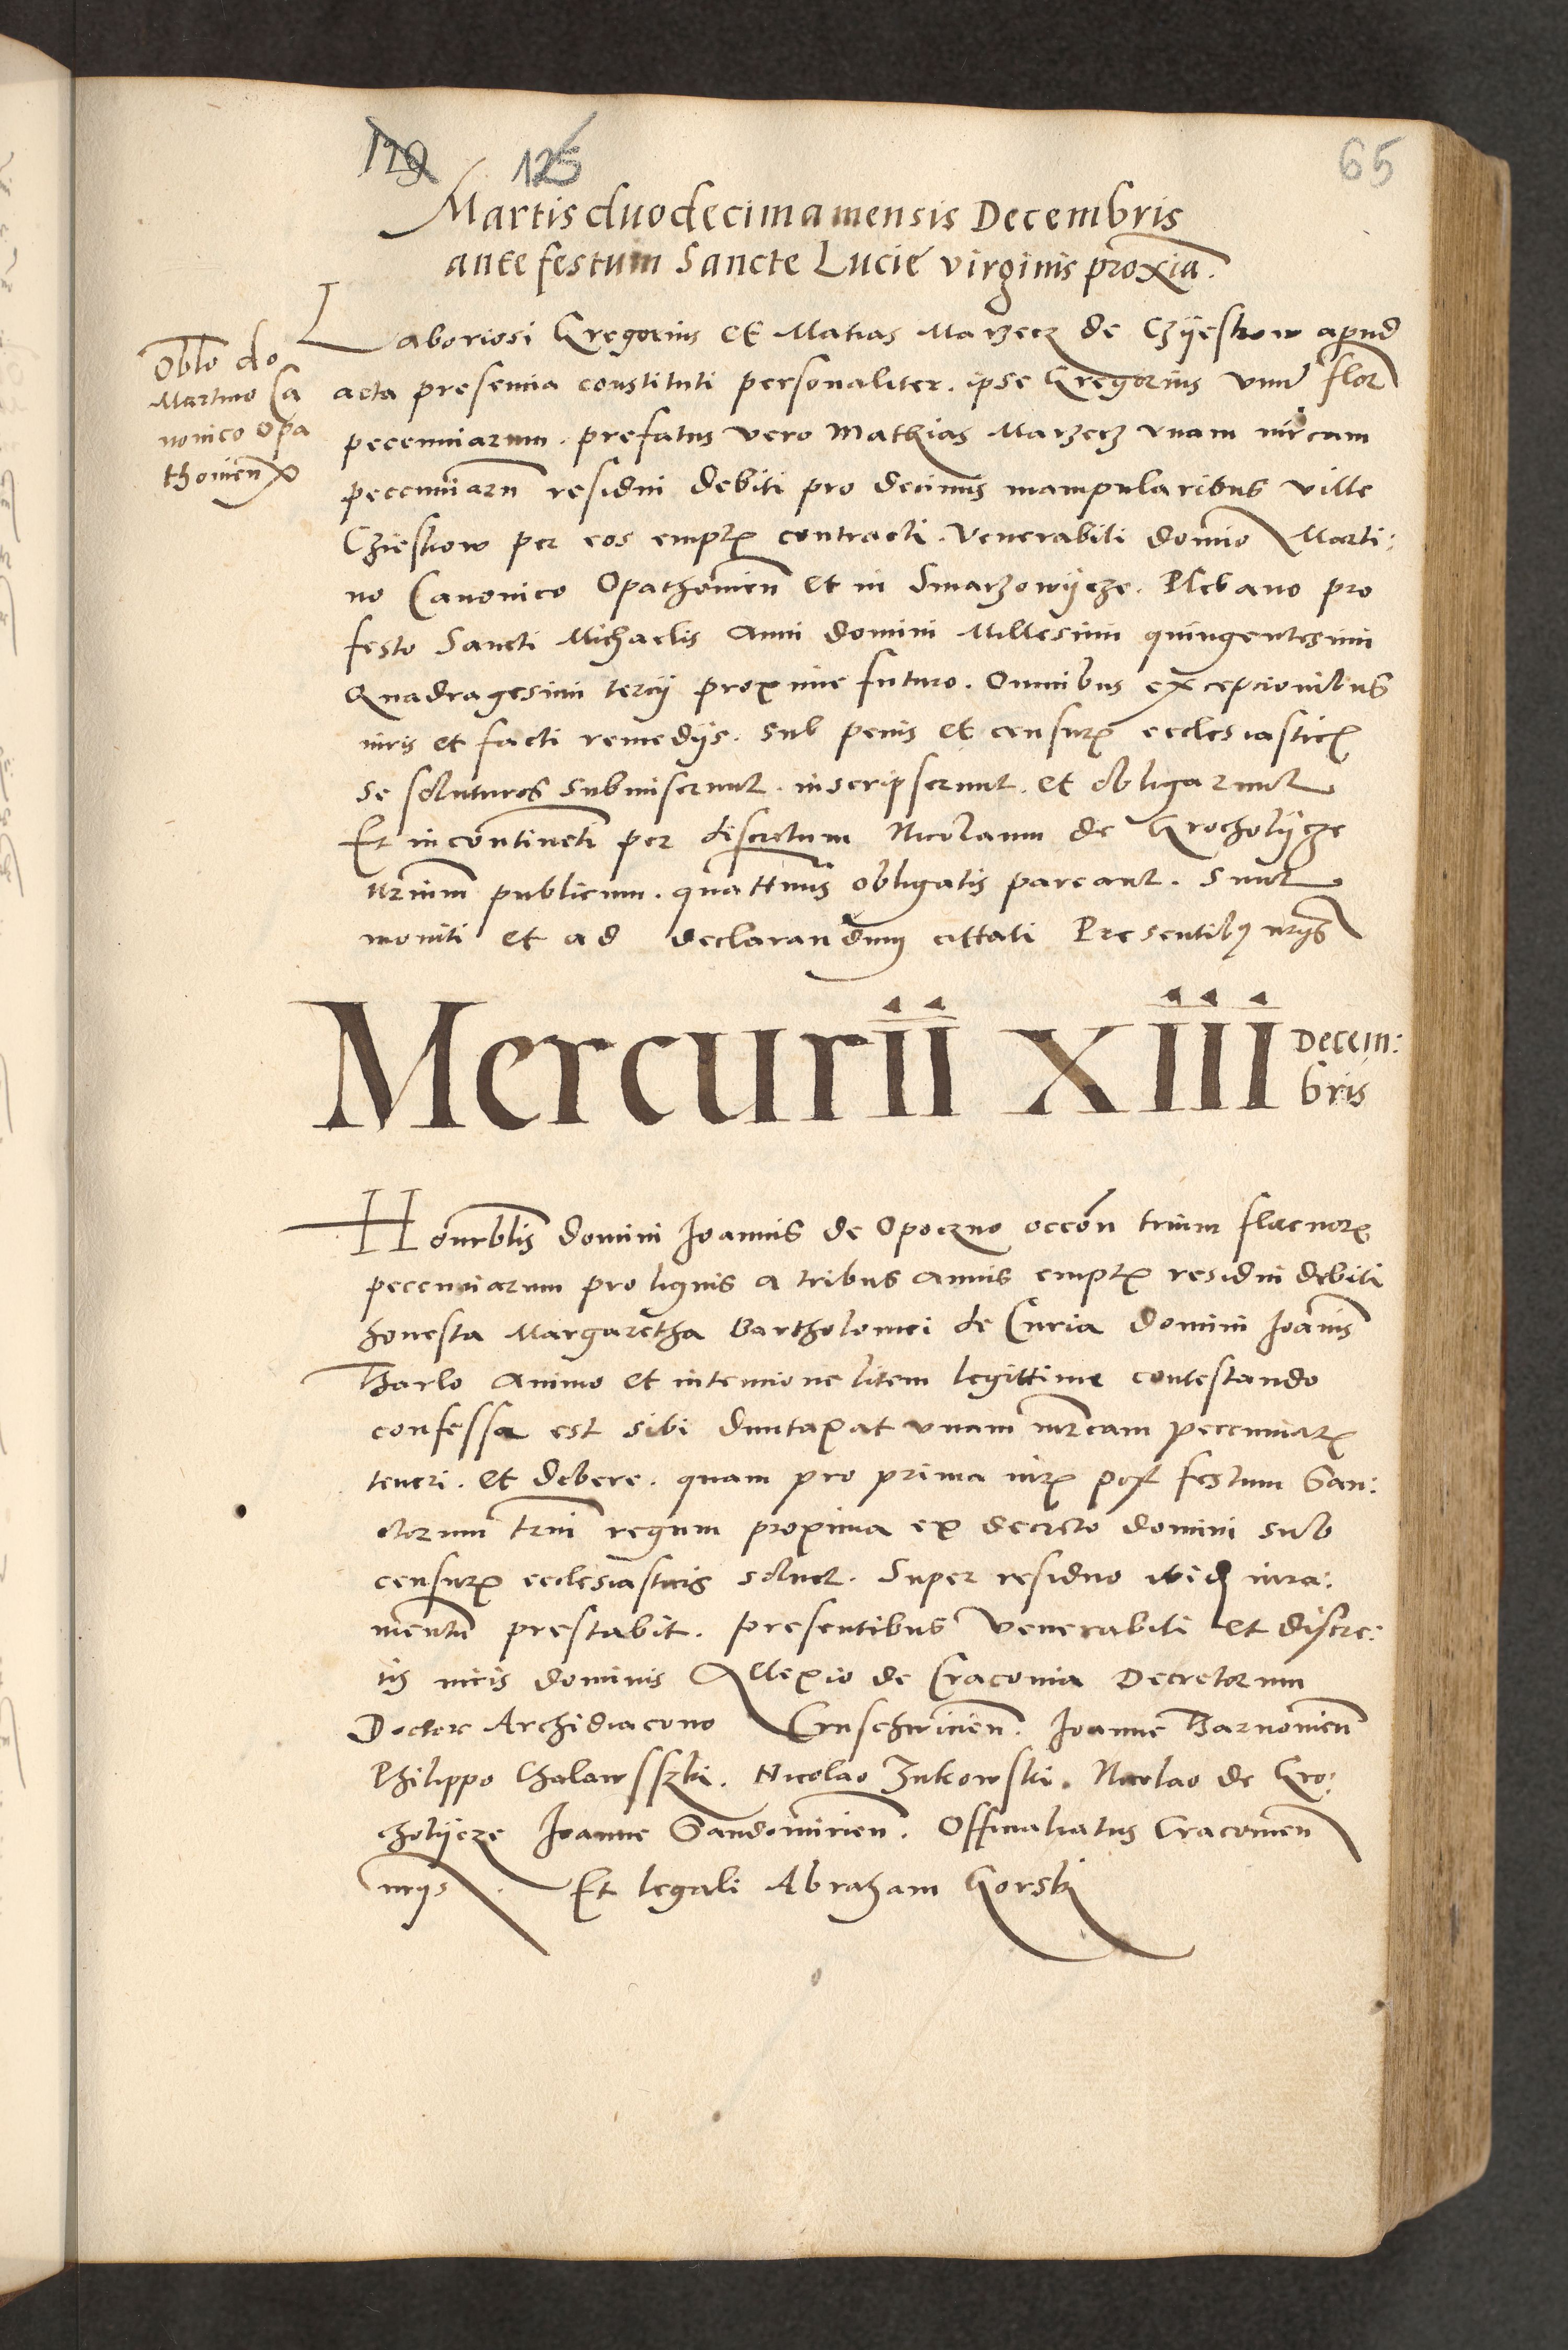 129 125 65
Martis duodecima mensis Decembris
ante festum Sancte Lucie virginis proxia.
Oblo do
Martino Ca
nonico Opa
thovien
Laboriosi Gregorius et Matias Marzecz de Czÿeskow apud
acta presencia constituti personaliter. ipse Gregorius unu flor
pecuniarum. prefatus vero Mathias Marzecz vnam mrcam
pecuniarũ residui debiti pro decimis manipularibus ville
Czieskow per eos empt contracti. Venerabili domino Marti:
no Canonico Opathovien et in Smarzowÿcze. Plebano pro
festo Sancti Michaelis Anni domini Millesimi quingentesimi
Quadragesimi tercÿ proxime futuro. Omnibus excepcionibus
iuris et facti remedÿs. sub penis et censur ecclesiastic
se soluturos submiserunt. inscripserunt. et obligarunt
Et incontineti per discretum Nicolaum de Grocholÿcze
publicum. quattenus obligatis pareant. Sunt
moniti et ad declarandum cittati Presentibus
Mercurii xiii Decem:
bris
Honrblis domini Joannis de Opoczno occon trium florenor
pecuniarum pro lignis a tribus annis empt residui debiti
honesta Margaretha Bartholomei de Curia domini Joanis
Barlo Animo et intencione litem legittime contestando
confessa est sibi duntaxat vnam mrcam pecuniar
teneri. et debere. quam pro prima iur post festum San:
ctorum triu regum proxima ex decreto domini sub
censur ecclesiasticis soluet. Super residuo ibidem iura:
mentu prestabit. presentibus Venerabili et discre:
tis viris dominis Allexio de Cracovia Decretorum
Doctore Archidiacono Cruschwicien. Joanne Barnovien
Philippo Chalawsszki. Nicolao Zukowski. Nicolao de Gro:
cholÿcze Joanne Sandomirien. Officialiatus Cracovien
Et legali Abraham Gorski